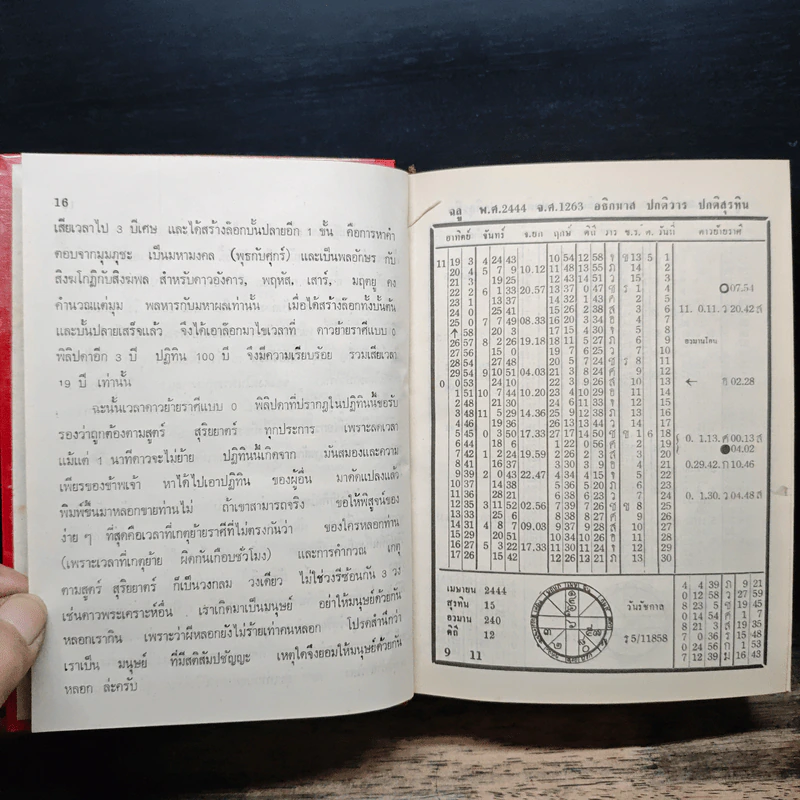 16
เสียเวลาไป 3 ปีเศษ และได้สร้างล๊อกบั้นปลายอีก 1 ขั้น คือการหาคำ
ตอบจากมุมภุชะ เป็นมหามงคล (พุธกับศุกร์) และเป็นพลอักษร กับ
สิงฆโกฏิกับสิงฆพล สำหรับดาวอังคาร, พฤหัส, เสาร์, มฤตยู คง
คำนวณแต่มุม พลหารกับมหาผลเท่านั้น เมื่อได้สร้างล๊อกทั้งบั้นต้น
และบั้นปลายเสร็จแล้ว จึงได้เอาล๊อกมาไขเวลาที่ ดาวย้ายราศีแบบ 0
พิลิปดาอีก 3 ปี ปฏิทิน 100 ปี จึงมีความเรียบร้อย รวมเสียเวลา
19 ปี เท่านั้น
ฉะนั้นเวลาดาวย้ายราศีแบบ 0 พิลิปดาที่ปรากฏในปฏิทินนี้ขอรับ
รองว่าถูกต้องตามสูตร์ สุริยยาตร์ ทุกประการ เพราะลดเวลา
แม้แต่ 1 นาทีดาวจะไม่ย้าย ปฏิทินนี้เกิดจาก มันสมองและความ
เพียรของข้าพเจ้า หาได้ไปเอาปฏิทิน ของผู้อื่น มาดัดแปลงแล้ว
พิมพ์ขึ้นมาหลอกขายท่านไม่ ถ้าเขาสามารถจริง ขอให้พิสูจน์ของ
ง่าย ๆ ที่สุดคือเวลาที่เกตุย้ายราศีที่ไม่ตรงกันว่า ของใครหลอกท่าน
(เพราะเวลาที่เกตุย้าย ผิดกันเกือบชั่วโมง) และการคำนวณ เกตุ
ตามสูตร์ สุริยยาตร์ ก็เป็นวงกลม วงเดียว ไม่ใช่วงรีซ้อนกัน 3 วง
เช่นดาวพระเคราะห์อื่น เราเกิดมาเป็นมนุษย์ อย่าให้มนุษย์ด้วยกัน
หลอกเรากิน เพราะว่าผีหลอกยังไม่ร้ายเท่าคนหลอก โปรดสำนึกว่า
เราเป็น มนุษย์ ที่มีสติสัมปชัญญะ เหตุใดจึงยอมให้มนุษย์ด้วยกัน
หลอก ล่ะครับ
ฉลู พ.ศ.2444 จ.ศ.1263 อธิกมาส ปกติวาร ปกติสุรทิน
อาทิตย์ จันทร์ จ.ยก ฤกษ์ ดิถี วาร ข.ร. ศ. วันที่ ดาวย้ายราศี
11 19 3 4 24 43 10 54 12 58 13 5 1
20 4 5 7 9 10.12 11 48 13 55 14 2
21 3 19 25 12 43 14 51 15 3
22 2 6 1 33 20.57 13 37 0 47 1 4 07.54
23 1 13 37 14 32 1 43 2 5
24 0 25 41 15 26 2 38 3 6 11. 0.11. 20.42
25 0 7 7 49 08.33 16 20 3 34 4 7
58 20 3 17 15 4 30 5 8
26 57 8 2 26 19.18 18 11 5 27 6 9
27 56 15 0 19 7 6 25 7 10
28 54 27 48 20 5 7 24 8 11
29 54 9 10 51 04.03 21 3 8 24 9 12
0 0 53 24 10 22 3 9 26 10 13 02.28
1 51 10 7 44 10.20 23 4 10 29 11 14
2 48 21 30 24 6 11 33 12 15
3 48 11 5 29 14.36 25 9 12 38 13 16
4 46 19 36 26 13 13 44 14 17
5 45 0 3 50 17.33 27 17 14 50 1 6 18 0. 1.13. 00.13
6 44 18 6 1 22 0 56 2 19 04.02
7 42 1 2 24 19.59 2 26 2 3 3 20
8 41 16 37 3 30 3 9 4 21 0.29.42 10.46
9 39 2 0 43 22.47 4 34 4 15 5 22
10 37 14 38 5 36 5 20 6 23
11 36 28 21 6 38 6 23 7 24 0. 1.30. 04.48
12 35 3 11 52 02.56 7 39 7 26 8 25
13 33 25 6 8 38 8 27 9 26
14 31 4 8 7 09.03 9 37 9 28 10 27
15 29 20 51 10 34 10 26 11 28
16 27 5 3 22 17.33 11 30 11 24 12 29
17 26 15 42 12 26 13 21 13 30
เมษายน 2444
สุรทิน 15
อวมาน 240
ดิถี 12
9 11
วันรัชกาล
5/11858
4 4 39 9 21
0 12 58 27 59
8 23 5 19 45
0 14 54 1 7
8 21 3 39 35
7 0 36 15 48
0 24 56 1 53
7 12 39 16 43